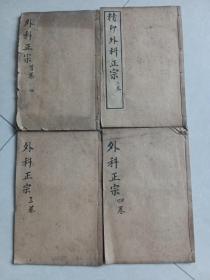 外科正宗 首卷
精印外科正宗
外科正宗 三卷
外科正宗 四卷